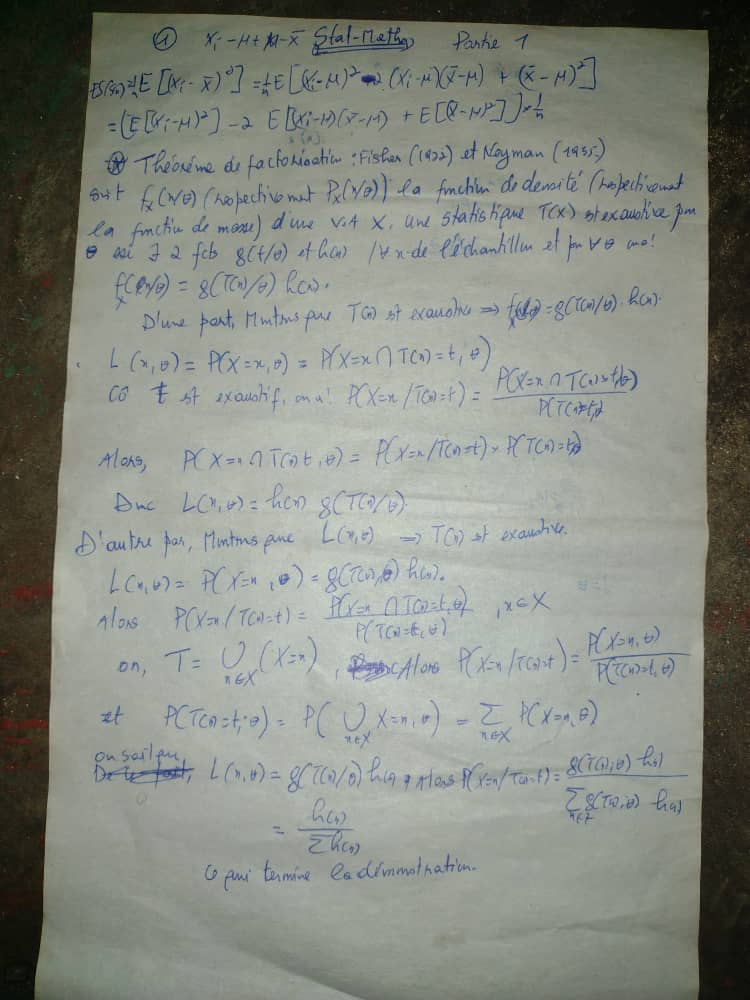 ① Xi - μ + μ - x̄ Stat-Maths Partie 1
E[(Xi - x̄)²] = 1/n E[(Xi - μ)² - 2 (Xi - μ)(x̄ - μ) + (x̄ - μ)²]
= (E[(Xi - μ)²] - 2 E[(Xi - μ)(x̄ - μ)] + E[(x̄ - μ)²]) × 1/n
Théorème de factorisation : Fisher (1922) et Neyman (1935)
soit f_X(x/θ) (respectivement P_X(x/θ)) la fonction de densité (respectivement
la fonction de masse) d'une v.a X, une statistique T(X) est exaustive pour
θ ssi ∃ 2 fcts g(t/θ) et h(x) / ∀ x de l'échantillon et pr ∀ θ on a :
f_X(x/θ) = g(T(x)/θ) h(x).
D'une part, Mntrns que T(x) est exaustive ⟹ = g(T(x)/θ) . h(x)
L(x, θ) = P(X=x, θ) = P(X=x ∩ T(x)=t, θ)
Co t est exaustif, on a : P(X=x / T(x)=t) = P(X=x ∩ T(x)=t, θ) / P(T(x)=t, θ)
Alors, P(X=x ∩ T(x)=t, θ) = P(X=x / T(x)=t) × P(T(x)=t, θ)
Duc L(x, θ) = h(x) g(T(x)/θ).
D'autre par, Mntrns que L(x, θ) ⟹ T(x) est exaustive.
L(x, θ) = P(X=x, θ) = g(T(x), θ) h(x).
Alors P(X=x / T(x)=t) = P(X=x ∩ T(x)=t, θ) / P(T(x)=t, θ) , x∈X
on, T = ∪_{x∈X} (X=x) , Alors P(X=x / T(x)=t) = P(X=x, θ) / P(T(x)=t, θ)
et P(T(x)=t, θ) = P(∪_{x∈X} X=x, θ) = Σ_{x∈X} P(X=x, θ)
on sait que, L(x, θ) = g(T(x)/θ) h(x), Alors P(X=x / T(x)=t) = g(T(x), θ) h(x) / Σ g(T(x), θ) h(x)
= h(x) / Σ h(x)
Ce qui termine la démonstration.